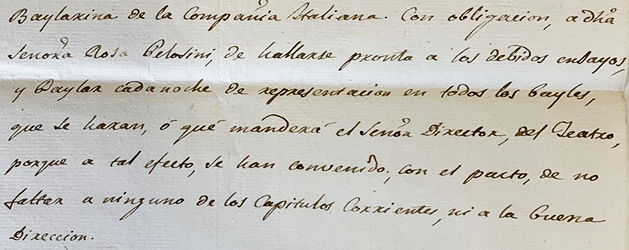 Baylarina de la Compañia Italiana. Con obligacion, a dha
Señora Rosa Pelosini, de hallarse pronta a los debidos ensayos,
y Baylar cada noche de representacion en todos los bayles,
que se haran, ó qué manderá el Señor Director, del Teatro,
porque a tal efecto, se han convenido; con el pacto, de no
faltar a ninguno de los Capitulos Corrientes, ni a la buena
Direccion.